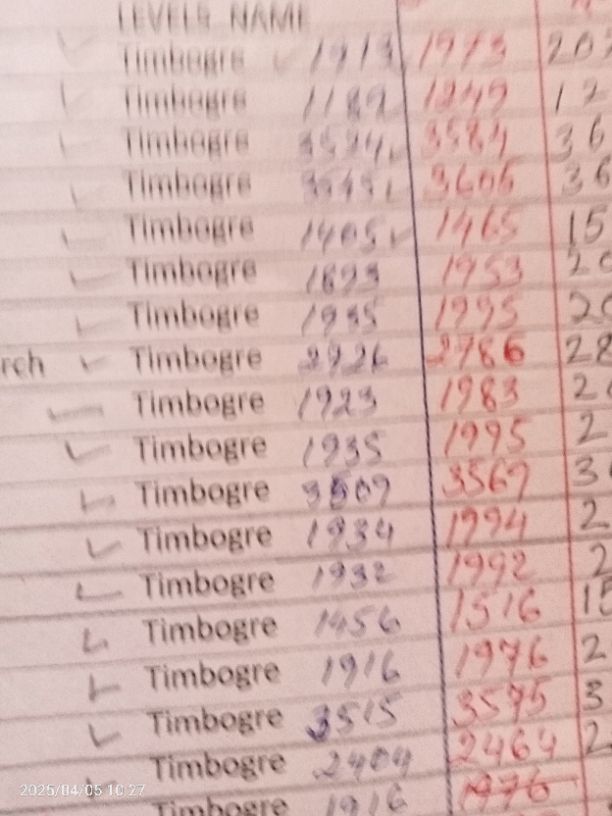 LEVEL5 NAME
Timbogre 1913 1973 20
Timbogre 1189 1249 12
Timbogre 3524 3584 36
Timbogre 3545 3605 36
Timbogre 1405 1465 15
Timbogre 1893 1953 20
Timbogre 1935 1995 20
rch Timbogre 2726 2786 28
Timbogre 1923 1983 2
Timbogre 1935 1995 2
Timbogre 3509 3569 3
Timbogre 1934 1994 2
Timbogre 1932 1992 2
Timbogre 1456 1516 15
Timbogre 1916 1976 2
Timbogre 3515 3575 3
Timbogre 2404 2464 2
Timbogre 1916 1976
2025/04/05 10:27